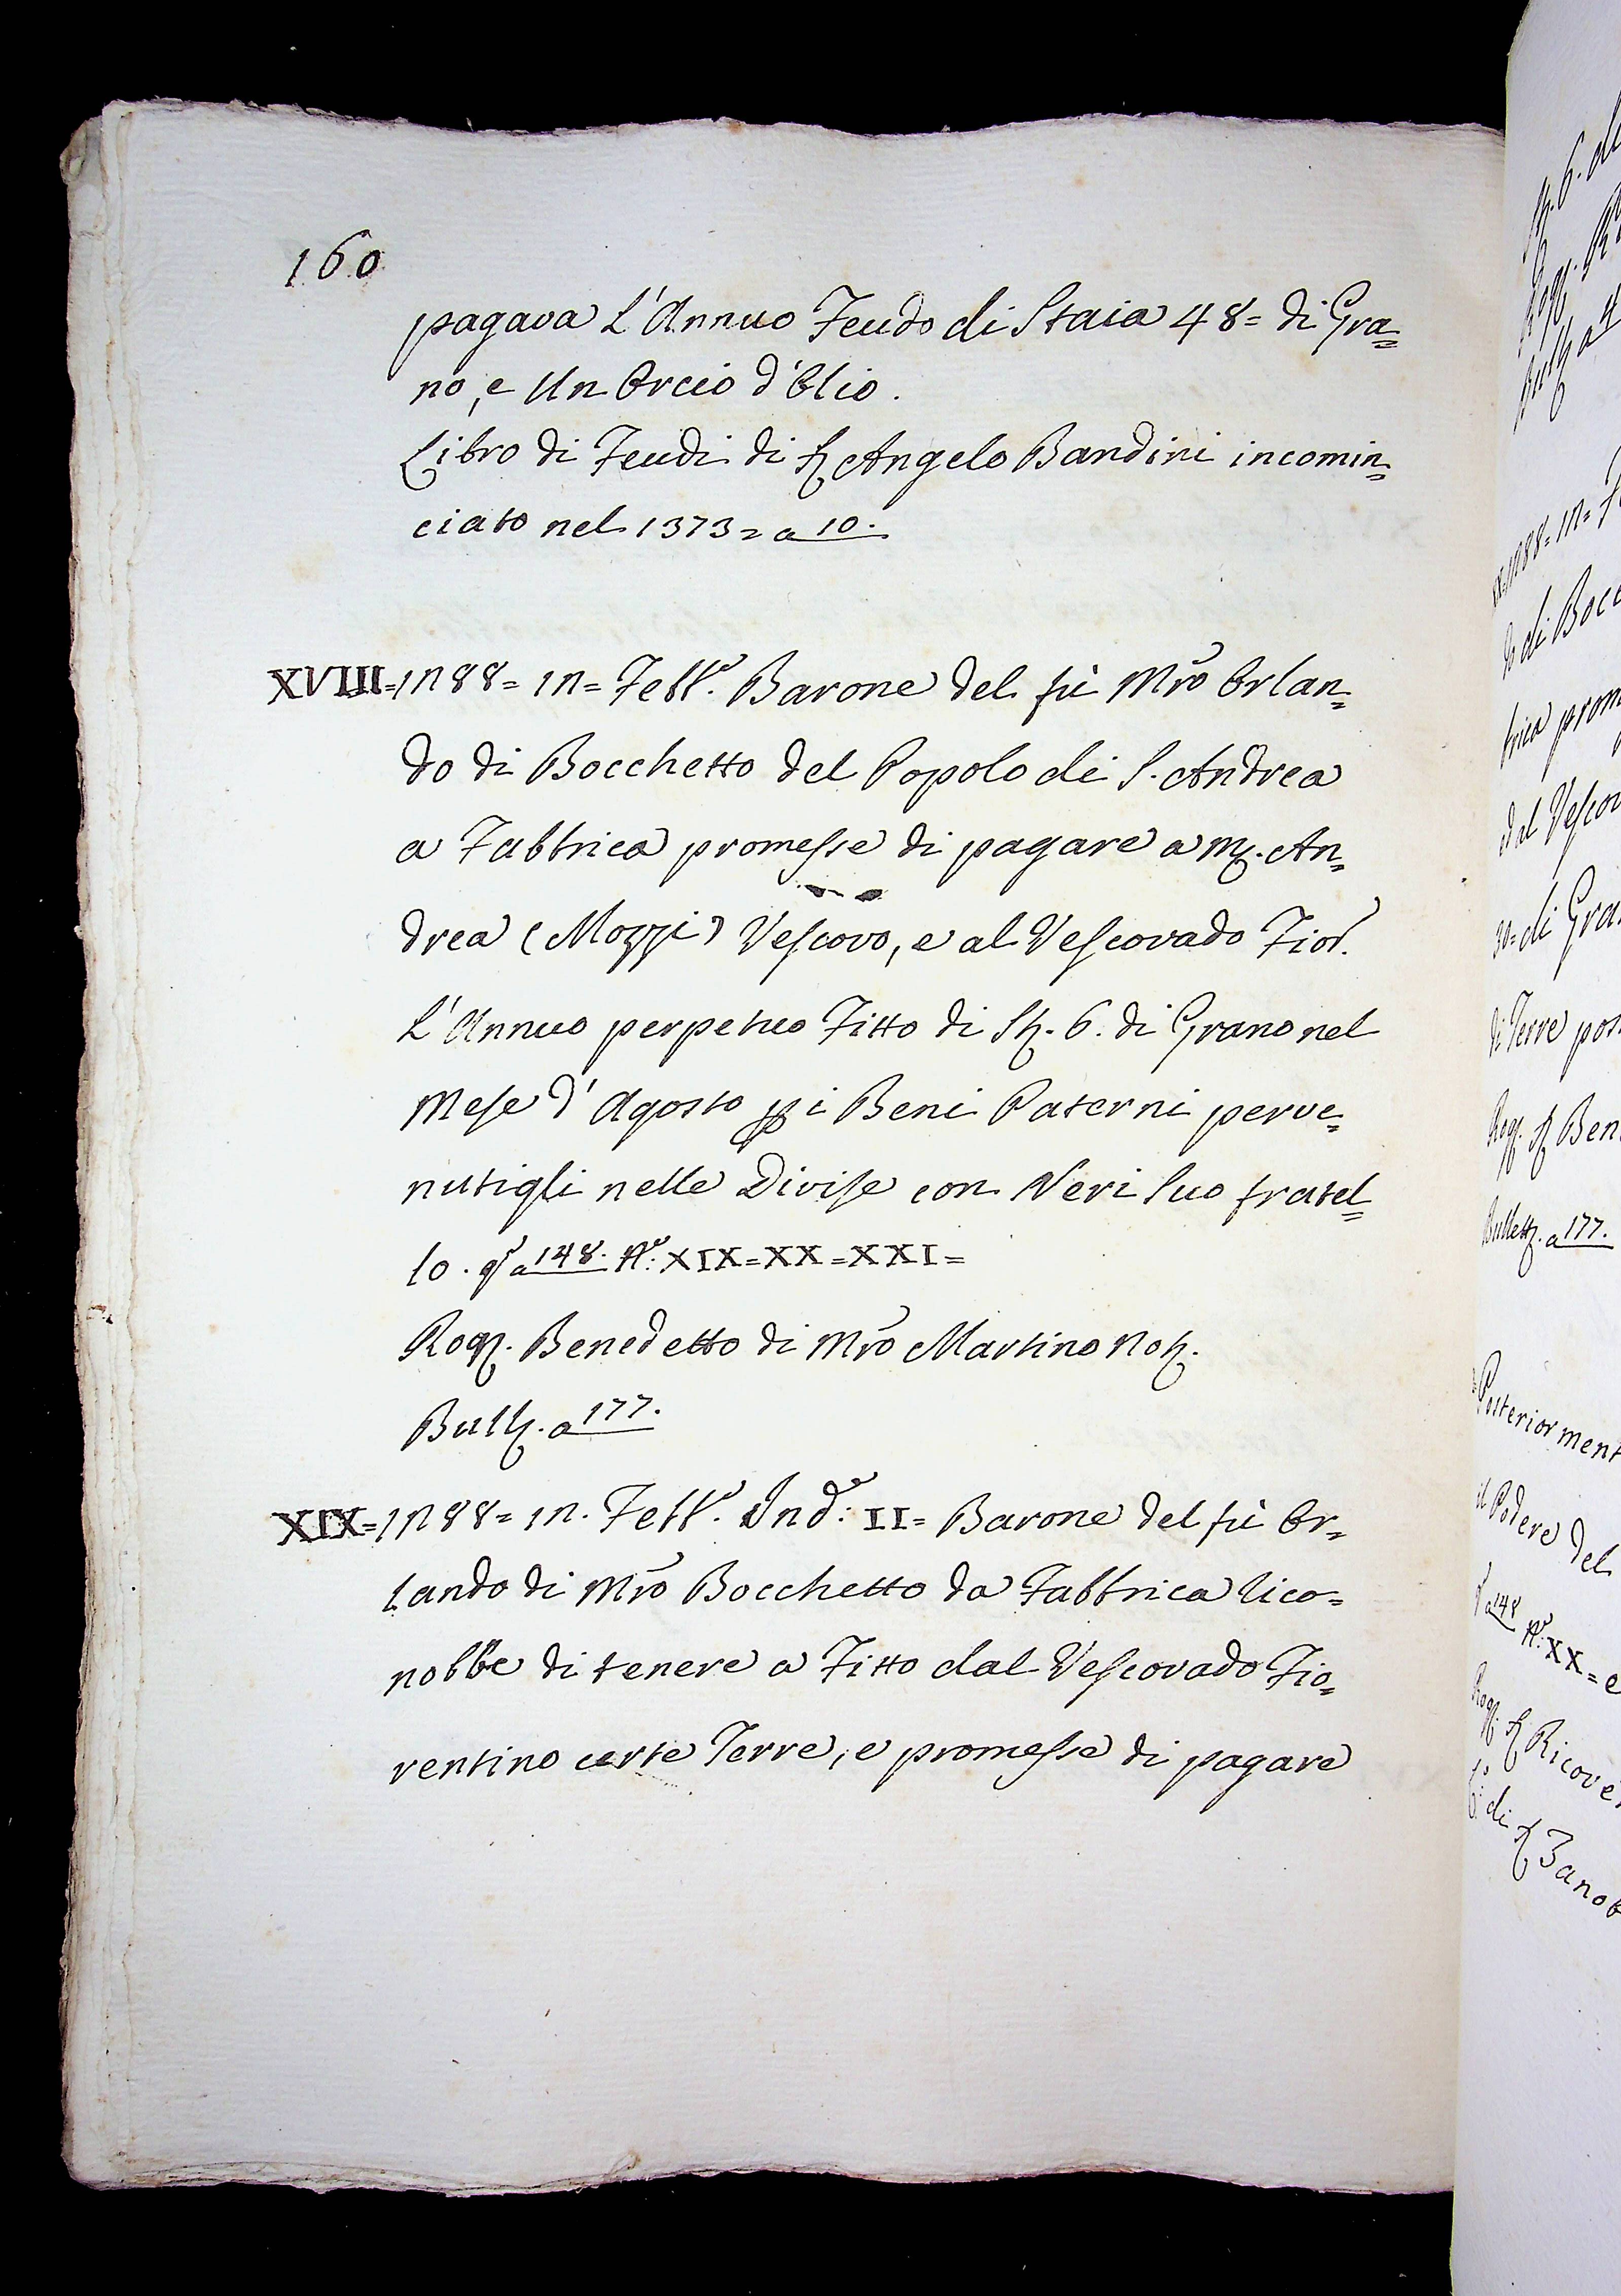 160
pagava L'Annuo Feudo di Staia 48= di Gra=
no, e Un Orcio d'Olio.
Libro di Feudi di Ser Angelo Bandini incomin=
ciato nel 1373= a 10.
XVIII=1288= 12= Febb.º Barone del fù Mrõ Orlan=
do di Bocchetto del Popolo di S. Andrea
a Fabbrica promesse di pagare a M. An=
drea (Mozzi) Vescovo, e al Vescovado Fior.
L'Annuo perpetuo Fitto di St. 6. di Grano nel
Mese d'Agosto p i Beni Paterni perve=
nutigli nelle Divise con Neri Suo fratel=
lo. qº a 148. Nº: XIX=XX=XXI=
Rog. Benedetto di Mrõ Martino Not.
Bull. a 177.
XIX=1288= 12. Febb.º Indº: II= Barone del fù Or=
lando di Mrõ Bocchetto da Fabbrica Rico=
nobbe di tenere a Fitto dal Vescovado Fio=
rentino certe Terre, e promesse di pagare
do di Bocc
dal Vescov
30= di Gra
di Terre pos
Rog. Ser Ben
Bullett. a 177.
Posteriorment
il Podere del
a 148 Nº: XX= e
Rog. Ser Ricove
di Ser Zanob